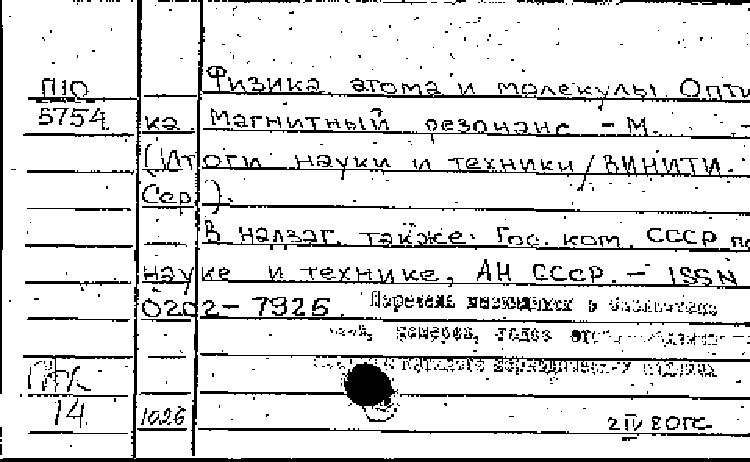 П10 Физика атома и молекулы Опти
5754 ка Магнитный резонанс - М. -
(Итоги науки и техники/ВИНИТИ.
Сер.).
В надзаг. также: Гос. ком. СССР по
науке и технике, АН СССР. - ISSN
0202-7925. Перечень имеющихся в библиотеке
номеров, годов
14 1026 2 IV 80 ГС